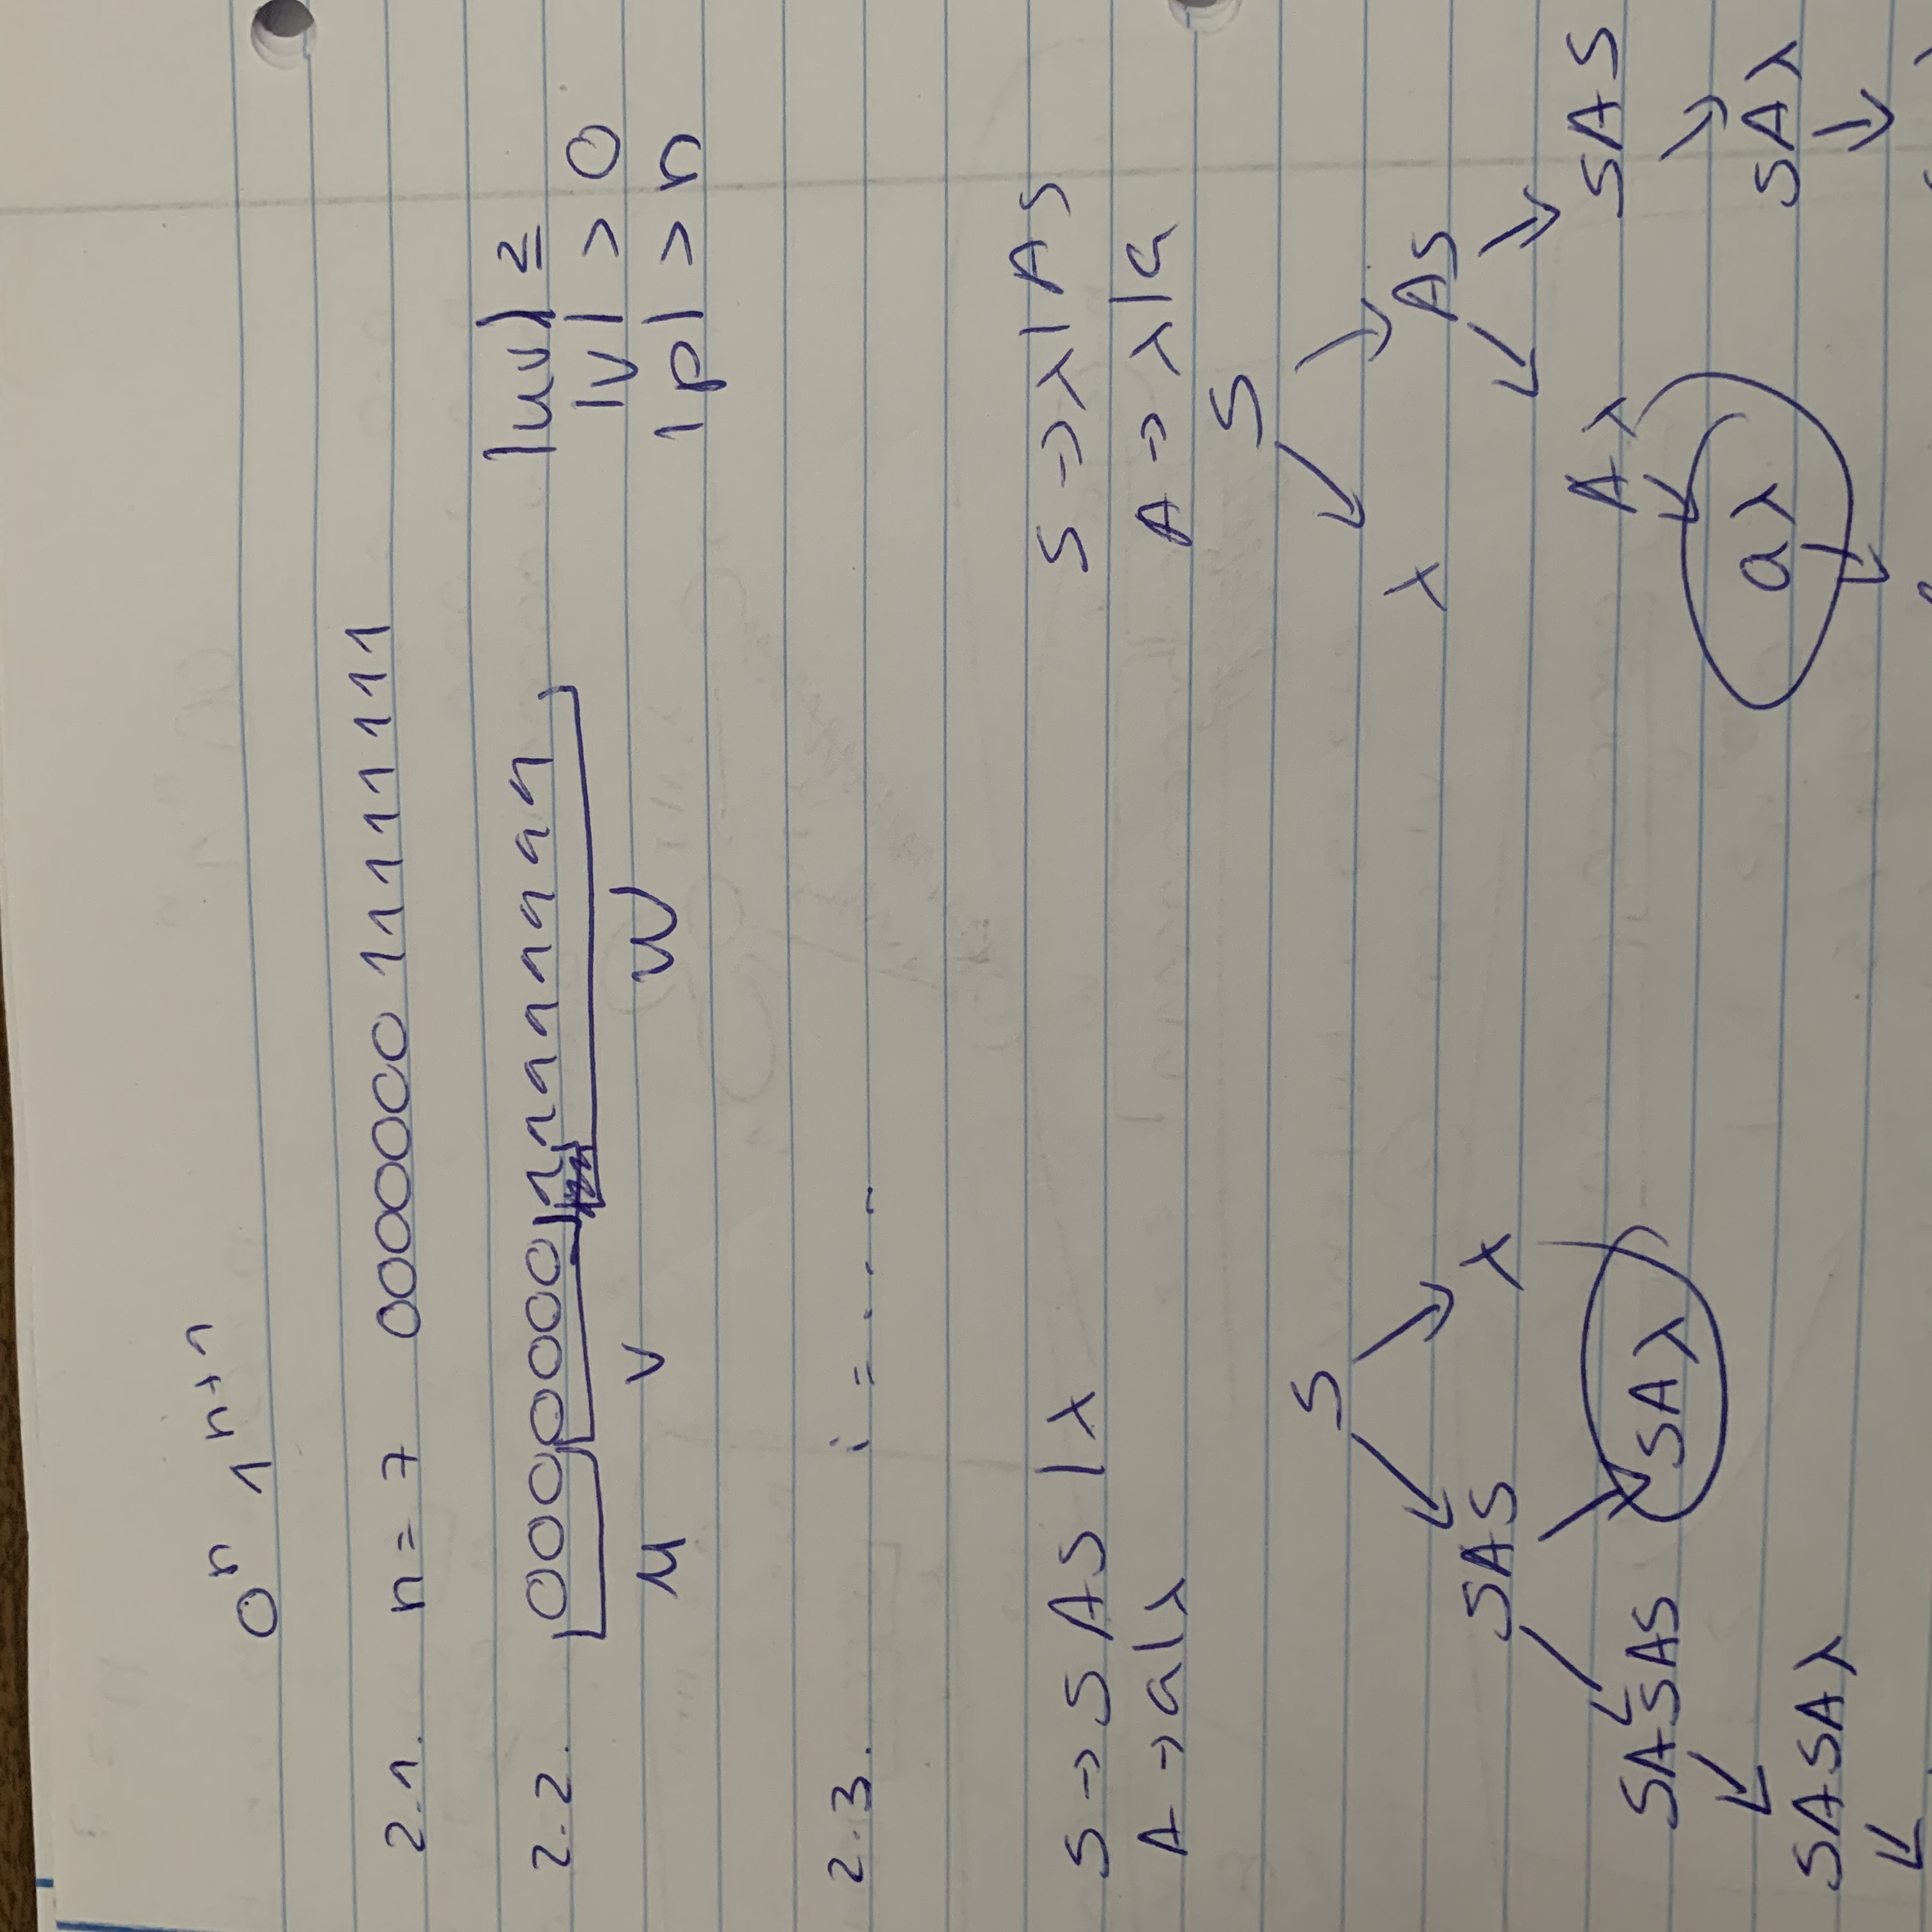 0ⁿ 1ⁿ⁺¹
2.1. n = 7 0000000 11111111
2.2. 000000011111111 |uv| ≥
u v w |v| > 0
|p| > n
2.3. i = ....
S → SAS | λ S → λ | AS
A → a | λ A → λ | a
S
S
SAS λ λ AS
SASAS SAλ Aλ SAS
SASAλ aλ SAλ